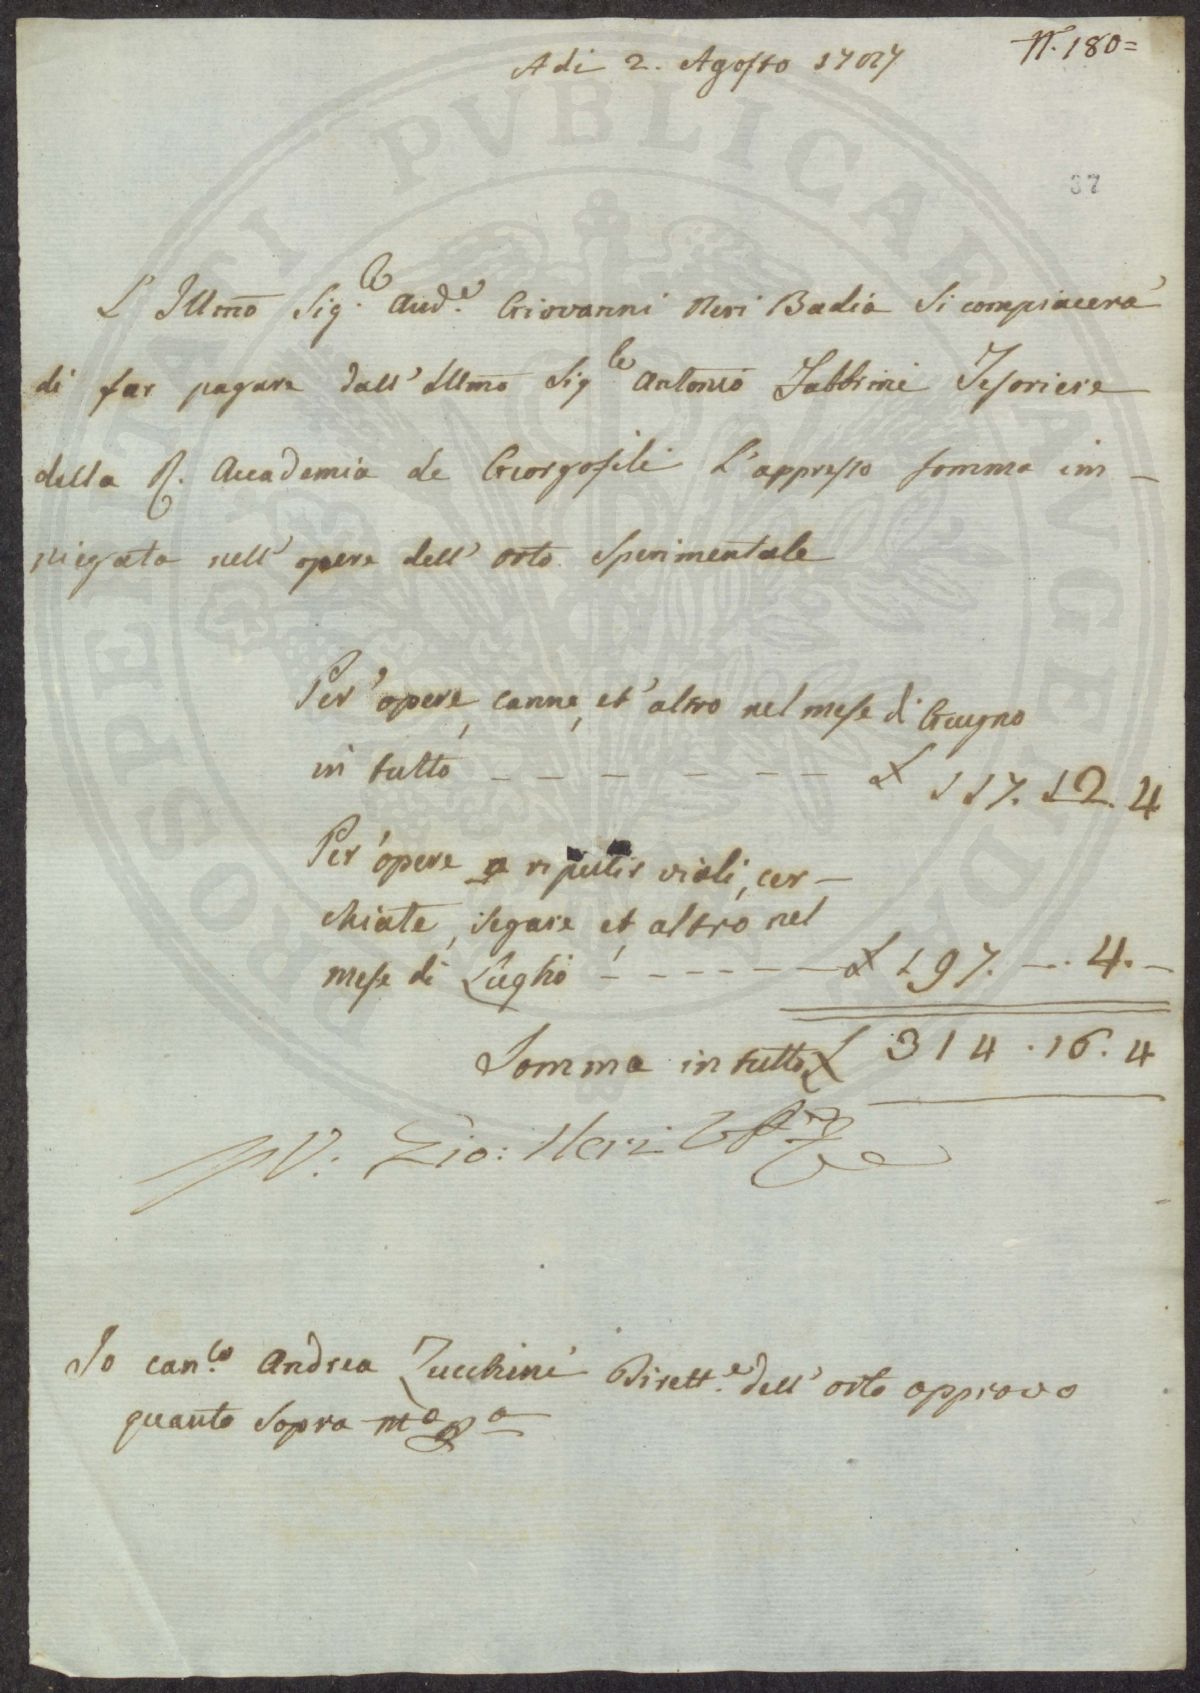 N. 180=
Adi 2. Agosto 1787
37
L' Illmo Sig.re Aud.e Giovanni Neri Badia si compiacerà
di far pagare dall' Illmo Sigre Antonio Fabbrini Tesoriere
della R. Accademia de Georgofili L'appresso somma im-
piegata nell' opere dell' orto Sperimentale
Per' opere, canne, et' altro nel mese di Giugno
in tutto - - - - - - - £ 117. 12. 4
Per' opere a ripulir viali, cer-
chiate, segare et altro nel
mese di Luglio - - - - - - £ 197. - . 4. -
Somma in tutto £ 314 . 16. 4
Gio: Neri
Io can.co Andrea Zucchini Dirett.e dell' orto approvo
quanto sopra mo pa
PROSPERITATI PVBLICAE AVGENDAE